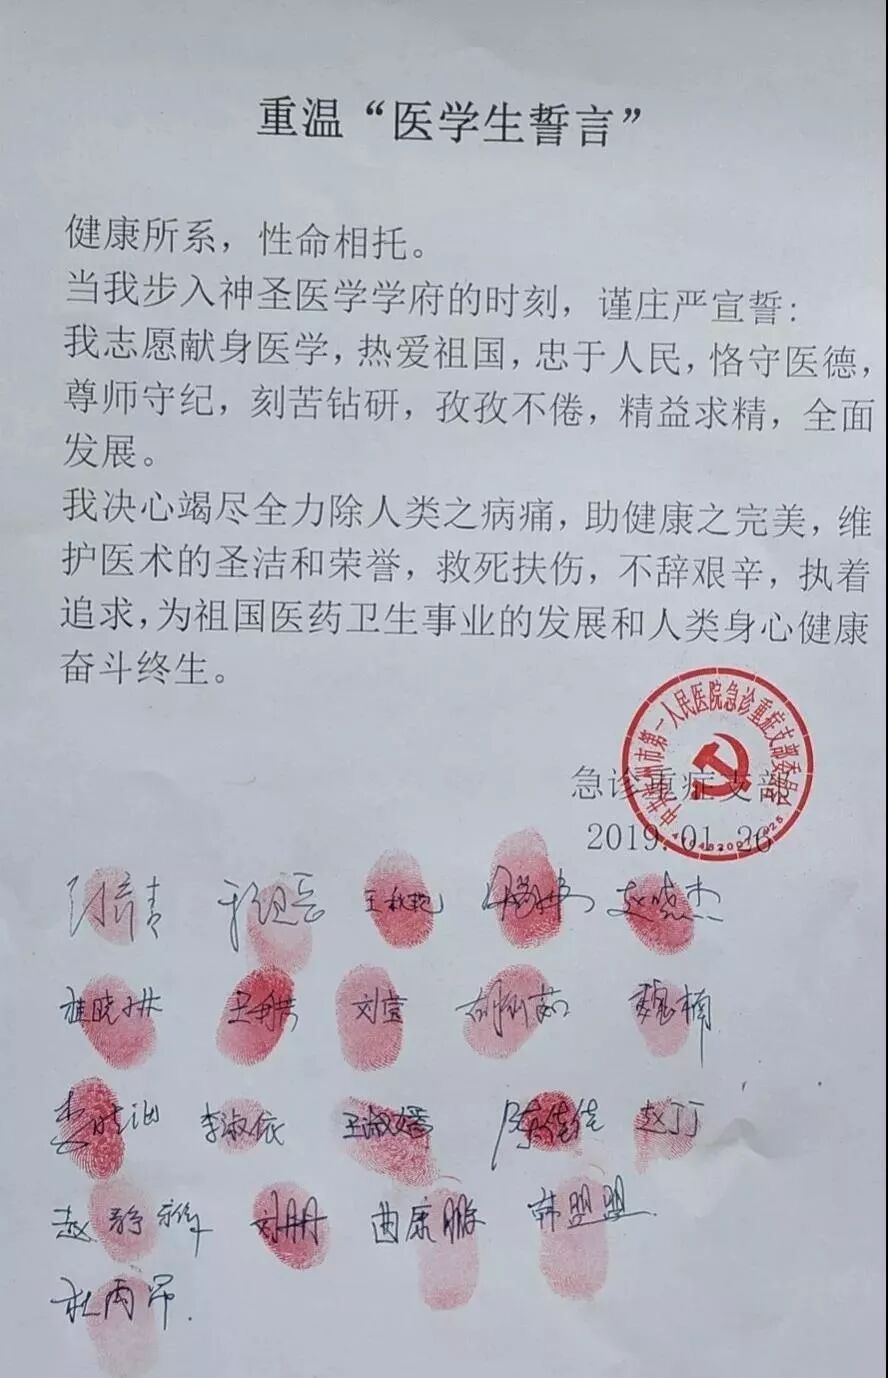 重温“医学生誓言”
健康所系，性命相托。
当我步入神圣医学学府的时刻，谨庄严宣誓：
我志愿献身医学，热爱祖国，忠于人民，恪守医德，
尊师守纪，刻苦钻研，孜孜不倦，精益求精，全面
发展。
我决心竭尽全力除人类之病痛，助健康之完美，维
护医术的圣洁和荣誉，救死扶伤，不辞艰辛，执着
追求，为祖国医药卫生事业的发展和人类身心健康
奋斗终生。
州市第一人民医院急诊重症支部委员会
急诊重症支部
2019.01.26
王秋艳 赵晓杰
刘莹 魏楠
李淑依 王淑嫣 陈佳佳 赵丁丁
赵静雅 刘丹丹 曲康鹏 韩盟盟
杜雨